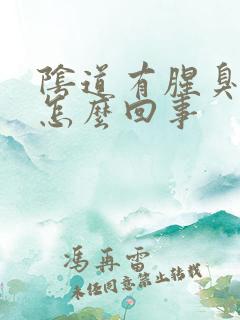 陰道有腥臭
怎麼回事
馮再雷
未經同意禁止轉載